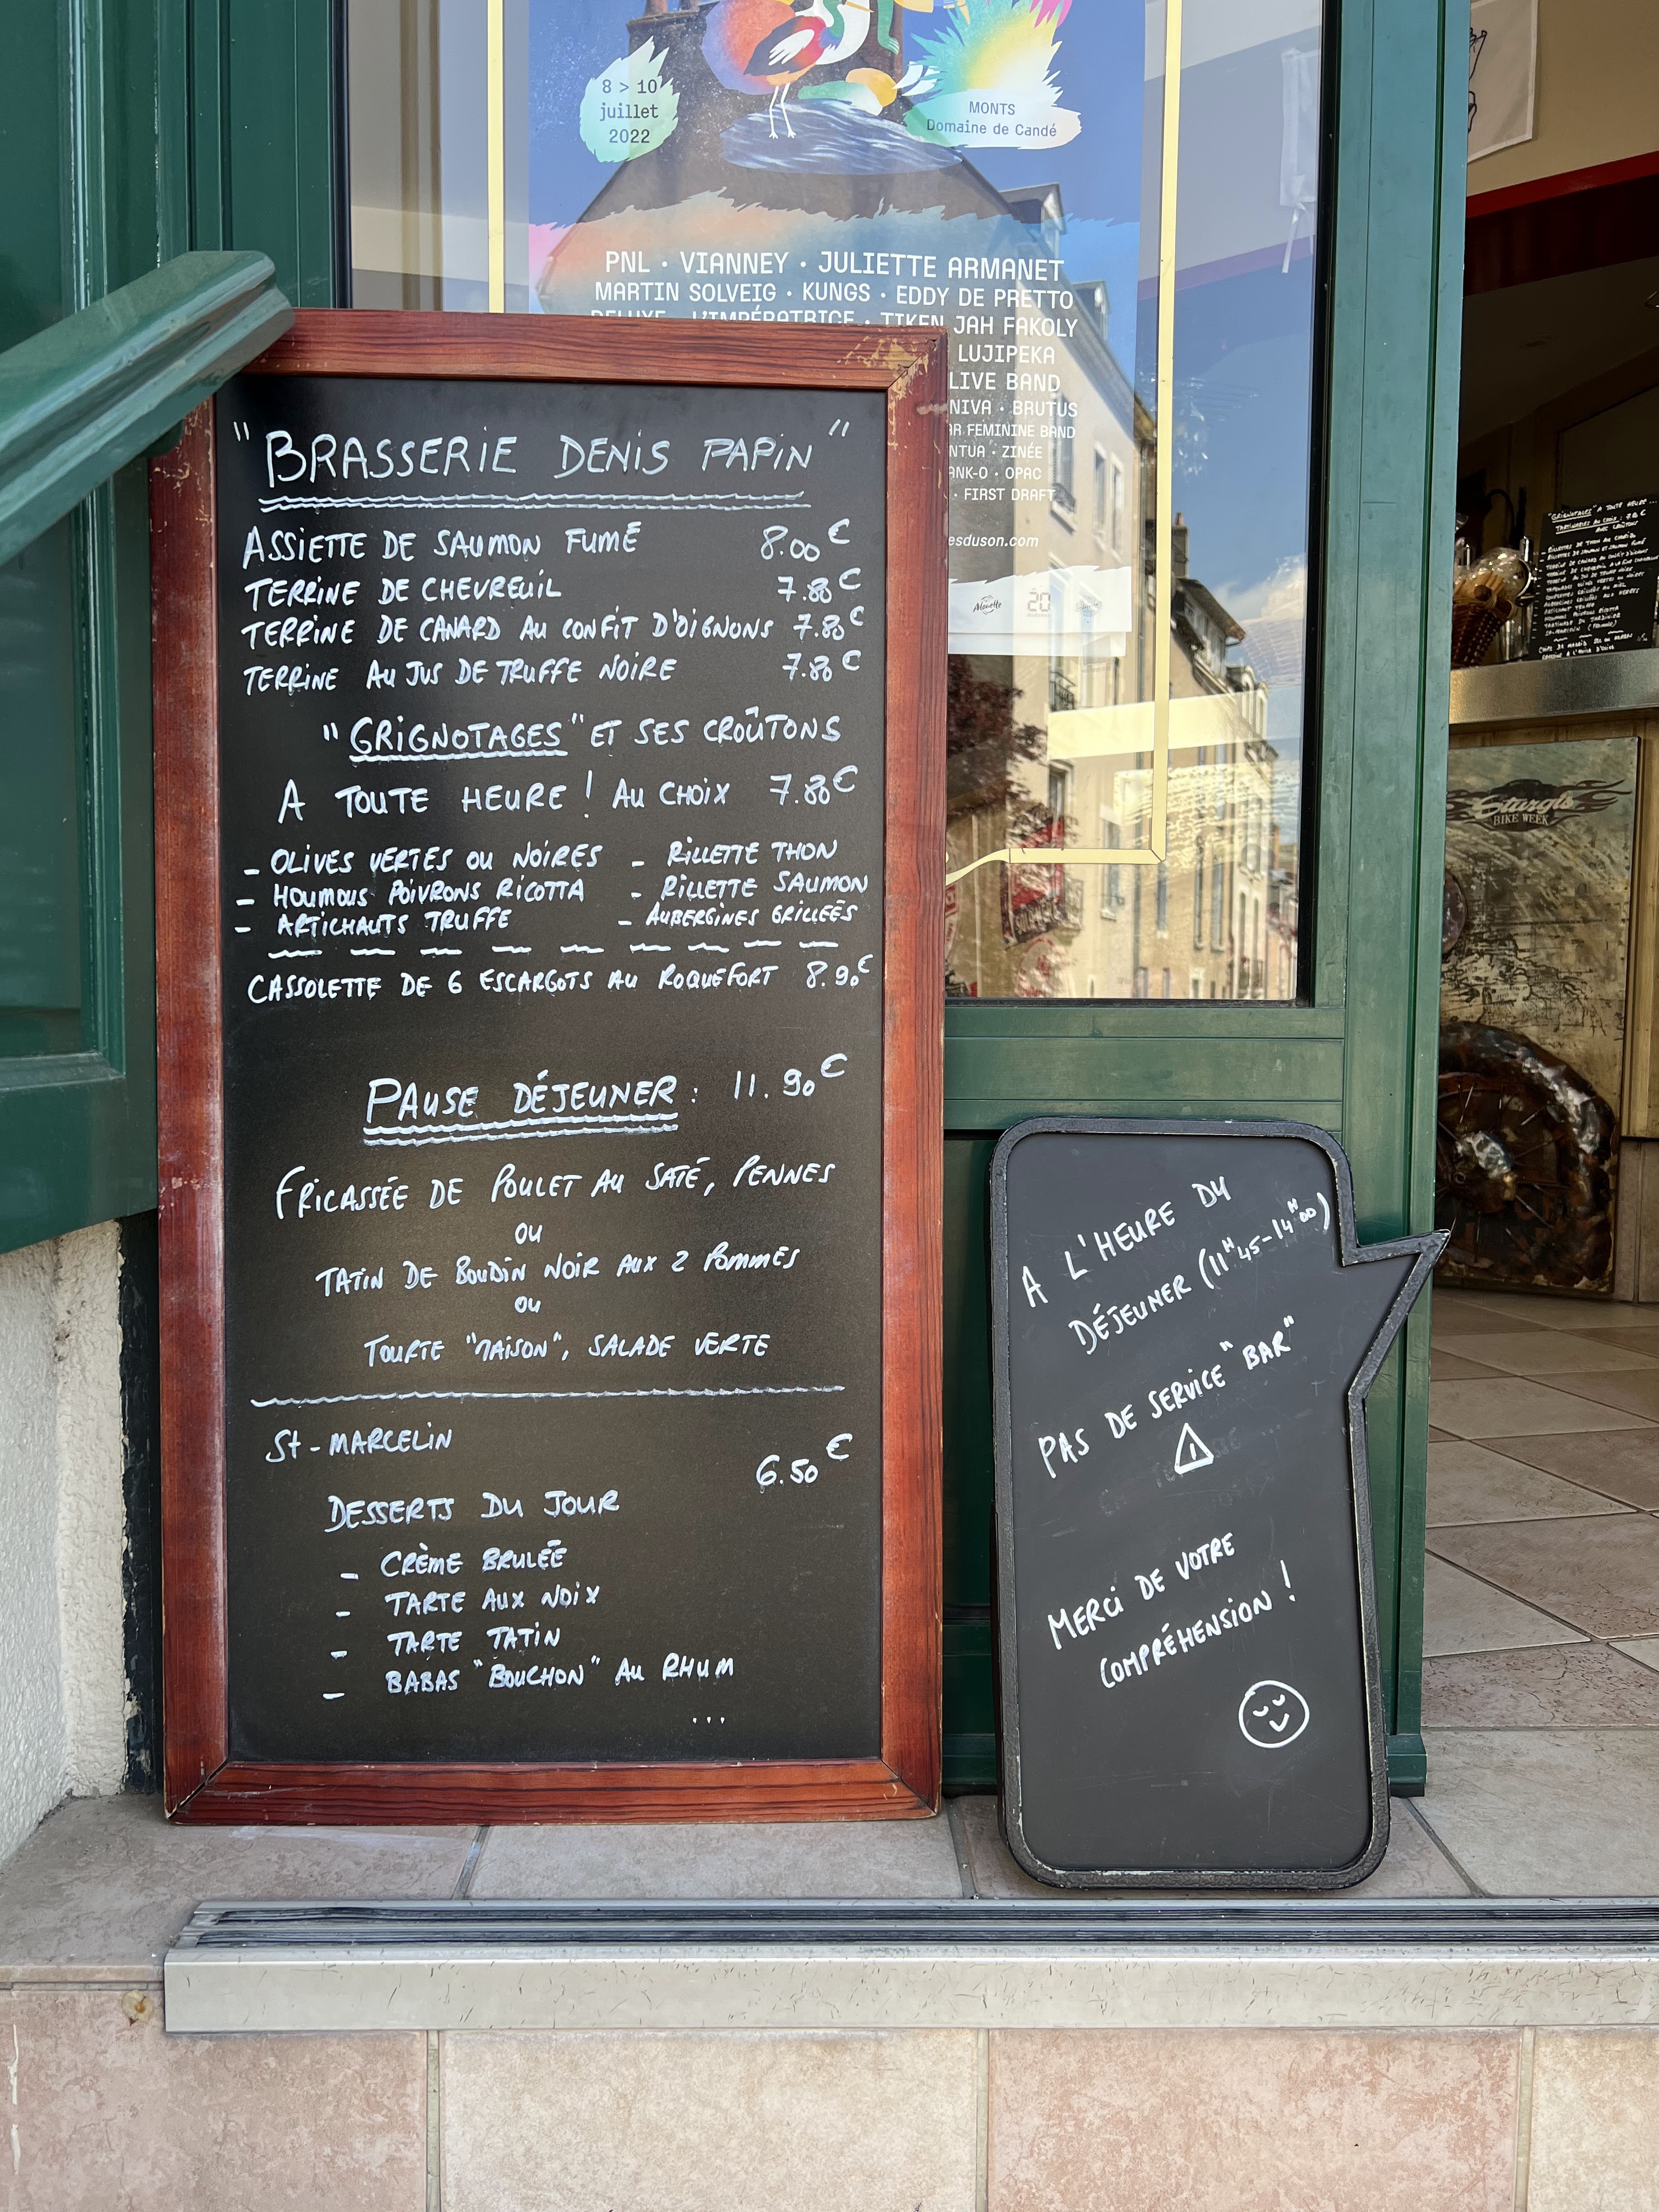 8 > 10
juillet
2022
MONTS
Domaine de Candé
PNL · VIANNEY · JULIETTE ARMANET
MARTIN SOLVEIG · KUNGS · EDDY DE PRETTO
DELUXE · L'IMPÉRATRICE · TIKEN JAH FAKOLY
LUJIPEKA
LIVE BAND
NIVA · BRUTUS
AR FEMININE BAND
NTUA · ZINÉE
ANK-O · OPAC
· FIRST DRAFT
esduson.com
20
"BRASSERIE DENIS PAPIN"
ASSIETTE DE SAUMON FUMÉ 8.00€
TERRINE DE CHEVREUIL 7.80€
TERRINE DE CANARD AU CONFIT D'OIGNONS 7.80€
TERRINE AU JUS DE TRUFFE NOIRE 7.80€
"GRIGNOTAGES" ET SES CROÛTONS
A TOUTE HEURE ! AU CHOIX 7.80€
- OLIVES VERTES OU NOIRES - RILLETTE THON
- HOUMOUS POIVRONS RICOTTA - RILLETTE SAUMON
- ARTICHAUTS TRUFFE - AUBERGINES GRILLEÉS
CASSOLETTE DE 6 ESCARGOTS AU ROQUEFORT 8.90€
PAUSE DÉJEUNER : 11.90€
FRICASSÉE DE POULET AU SATÉ, PENNES
OU
TATIN DE BOUDIN NOIR AUX 2 POMMES
OU
TOURTE "MAISON", SALADE VERTE
St-MARCELIN
6.50€
DESSERTS DU JOUR
- CRÈME BRULÉE
- TARTE AUX NOIX
- TARTE TATIN
- BABAS "BOUCHON" AU RHUM
...
A L'HEURE DU
DÉJEUNER (11H45-14H00)
PAS DE SERVICE "BAR"
MERCI DE VOTRE
COMPRÉHENSION !
Sturgis
BIKE WEEK
"GRIGNOTAGES" A TOUTE HEURE